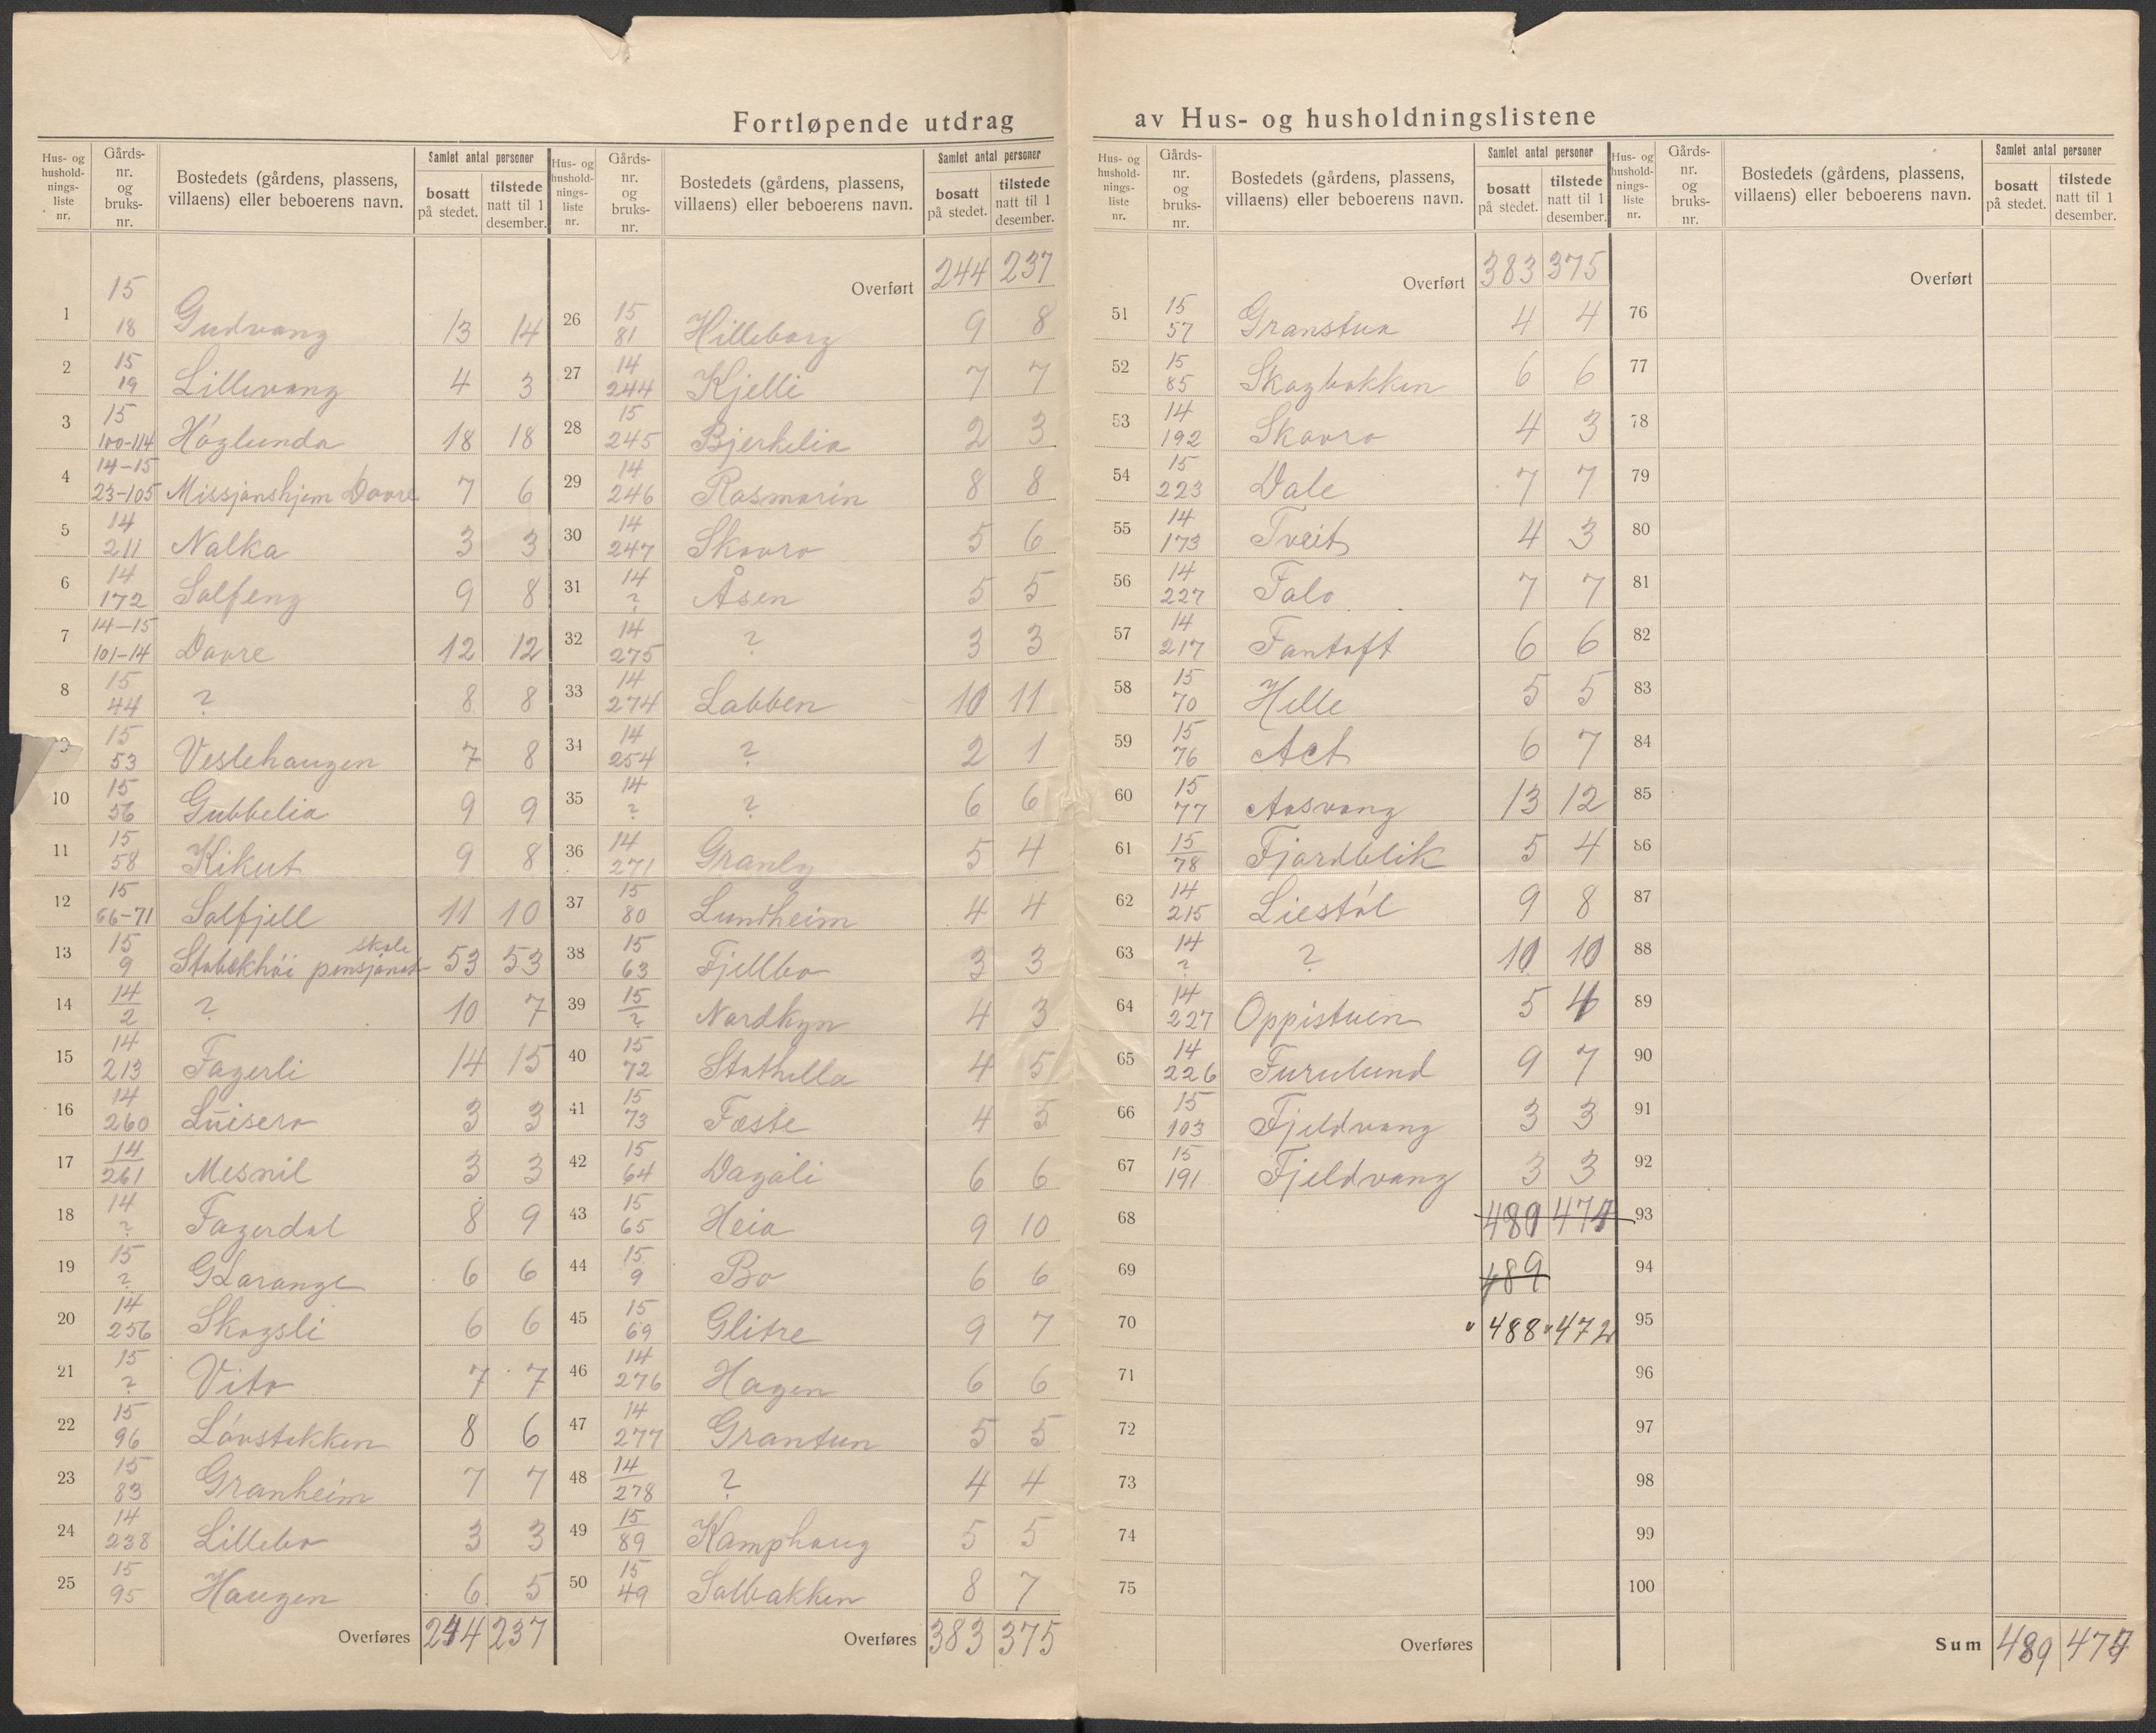 Fortløpende utdrag av Hus- og husholdningslistene
Hus- og husholdningsliste nr. | Gårdsnr. og bruksnr. | Bostedets (gårdens, plassens, villaens) eller beboerens navn. | Samlet antal personer bosatt på stedet. | tilstede natt til 1 desember.
1 | 15 18 | Gudvang | 13 | 14
2 | 15 19 | Lillevang | 4 | 3
3 | 15 100-114 | Höglunda | 18 | 18
4 | 14-15 23-105 | Missjonshjem Dovre | 7 | 6
5 | 14 211 | Nalka | 3 | 3
6 | 14 172 | Solfeng | 9 | 8
7 | 14-15 101-14 | Dovre | 12 | 12
8 | 15 44 | ? | 8 | 8
9 | 15 53 | Veslehaugen | 7 | 8
10 | 15 56 | Gubbelia | 9 | 9
11 | 15 58 | Kikut | 9 | 8
12 | 15 66-71 | Solfjell | 11 | 10
13 | 15 9 | Stabekhöi pensjonat skole | 53 | 53
14 | 14 2 | ? | 10 | 7
15 | 14 213 | Fagerli | 14 | 15
16 | 14 260 | Luisero | 3 | 3
17 | 14 261 | Mesnil | 3 | 3
18 | 14 ? | Fagerdal | 8 | 9
19 | 15 ? | 6 | 6
20 | 14 256 | Skogsli | 6 | 6
21 | 15 ? | Vito | 7 | 7
22 | 15 96 | Lövstakken | 8 | 6
23 | 15 83 | Granheim | 7 | 7
24 | 14 238 | Lillebo | 3 | 3
25 | 15 95 | Haugen | 6 | 5
Overføres 244 237
Hus- og husholdningsliste nr. | Gårdsnr. og bruksnr. | Bostedets (gårdens, plassens, villaens) eller beboerens navn. | Samlet antal personer bosatt på stedet. | tilstede natt til 1 desember.
Overført 244 237
26 | 15 81 | Hilleborg | 9 | 8
27 | 14 244 | Kjelli | 7 | 7
28 | 15 245 | Bjerkelia | 2 | 3
29 | 14 246 | Rosmarin | 8 | 8
30 | 14 247 | Skovro | 5 | 6
31 | 14 ? | Åsen | 5 | 5
32 | 14 275 | ? | 3 | 3
33 | 14 274 | Labben | 10 | 11
34 | 14 254 | ? | 2 | 1
35 | 14 ? | ? | 6 | 6
36 | 14 271 | Granly | 5 | 4
37 | 15 80 | Lundheim | 4 | 4
38 | 15 63 | Fjellbo | 3 | 3
39 | 15 ? | Nordkyn | 4 | 3
40 | 15 72 | Stathella | 4 | 5
41 | 15 73 | Fæste | 4 | 5
42 | 15 64 | Dagali | 6 | 6
43 | 15 65 | Heia | 9 | 10
44 | 15 9 | Bo | 6 | 6
45 | 15 69 | Glitre | 9 | 7
46 | 14 276 | Hagen | 6 | 6
47 | 14 277 | Grantun | 5 | 5
48 | 14 278 | ? | 4 | 4
49 | 15 89 | Kamphaug | 5 | 5
50 | 15 49 | Solbakken | 8 | 7
Overføres 383 375
Hus- og husholdningsliste nr. | Gårdsnr. og bruksnr. | Bostedets (gårdens, plassens, villaens) eller beboerens navn. | Samlet antal personer bosatt på stedet. | tilstede natt til 1 desember.
Overført 383 375
51 | 15 57 | Granstua | 4 | 4
52 | 15 85 | Skogbakken | 6 | 6
53 | 14 192 | Skovro | 4 | 3
54 | 15 223 | Dale | 7 | 7
55 | 14 173 | Tveit | 4 | 3
56 | 14 227 | Falo | 7 | 7
57 | 14 217 | Fantoft | 6 | 6
58 | 15 70 | Helle | 5 | 5
59 | 15 76 | 6 | 7
60 | 15 77 | Aasvang | 13 | 12
61 | 15 78 | Fjordblik | 5 | 4
62 | 14 215 | Liestöl | 9 | 8
63 | 14 ? | ? | 10 | 10
64 | 14 227 | Oppistuen | 5 | 4
65 | 14 226 | Furulund | 9 | 7
66 | 15 103 | Fjeldvang | 3 | 3
67 | 15 191 | Fjeldvang | 3 | 3
68
69 489
70 488 472
71
72
73
74
75
Overføres
Hus- og husholdningsliste nr. | Gårdsnr. og bruksnr. | Bostedets (gårdens, plassens, villaens) eller beboerens navn. | Samlet antal personer bosatt på stedet. | tilstede natt til 1 desember.
Overført
76
77
78
79
80
81
82
83
84
85
86
87
88
89
90
91
92
93
94
95
96
97
98
99
100
Sum 489